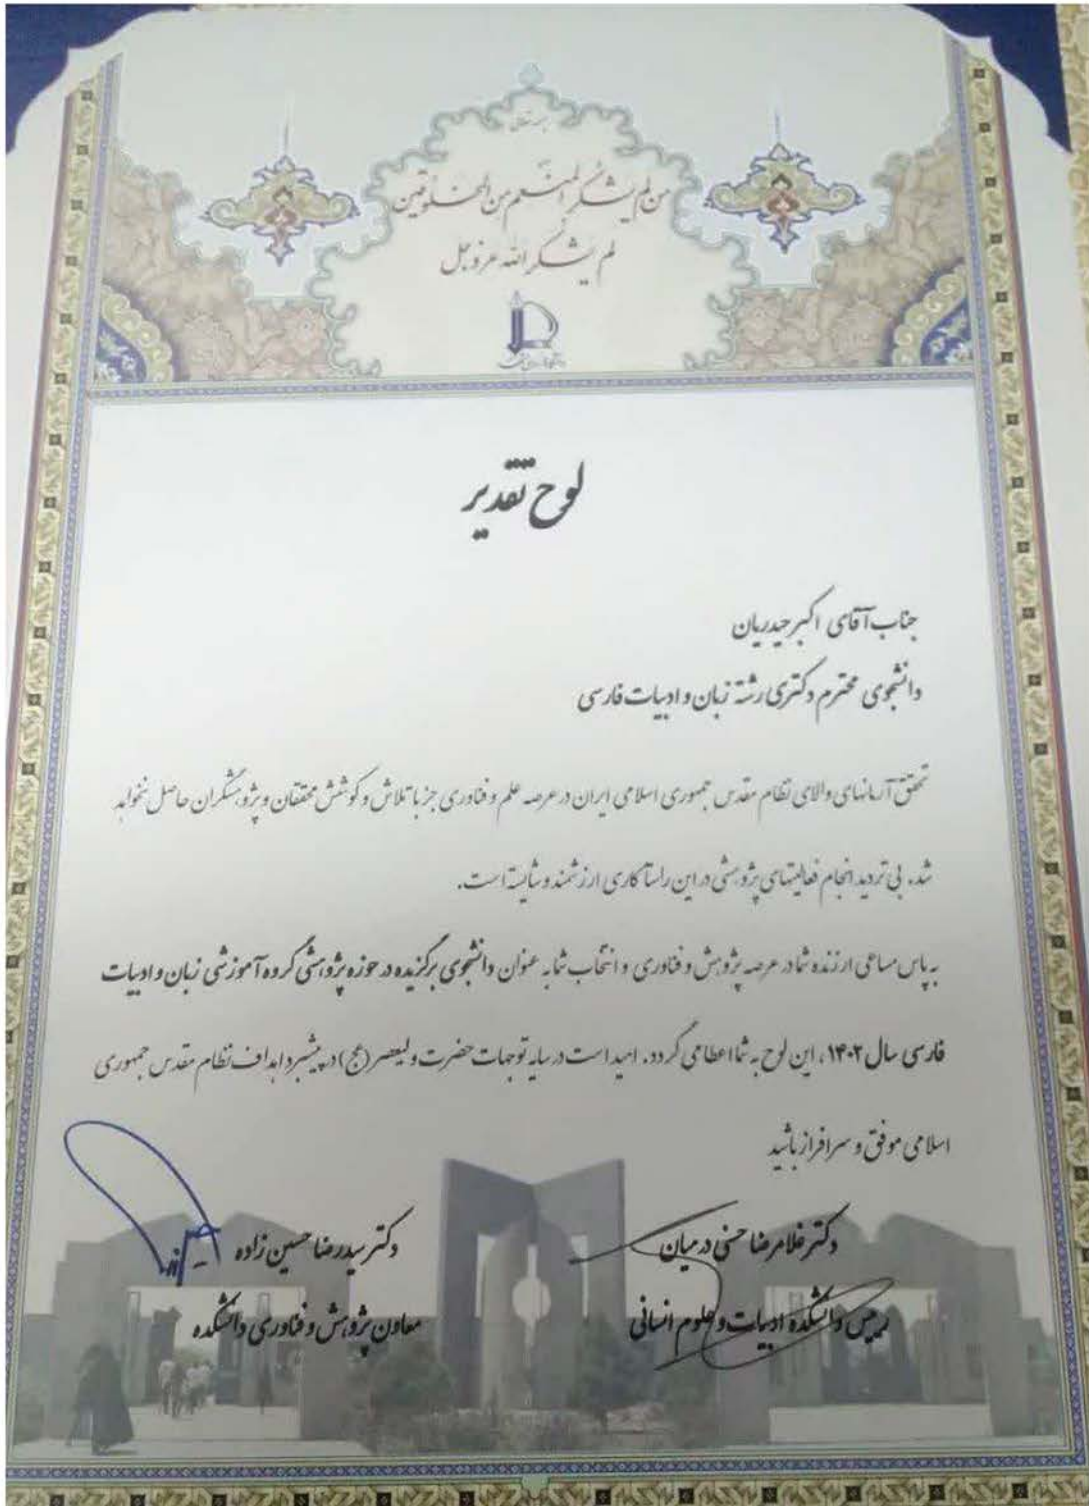 بسمه تعالی
من لم یشکر المنعم من المخلوقین
لم یشکر الله عزوجل
لوح تقدیر
جناب آقای اکبر حیدریان
دانشجوی محترم دکتری رشته زبان و ادبیات فارسی
تحقق آرمانهای والای نظام مقدس جمهوری اسلامی ایران در عرصه علم و فناوری جز با تلاش و کوشش محققان و پژوهشگران حاصل نخواهد
شد. بی تردید انجام فعالیتهای پژوهشی در این راستا کاری ارزشمند و شایسته است.
به پاس مساعی ارزنده شما در عرصه پژوهش و فناوری و انتخاب شما به عنوان دانشجوی برگزیده در حوزه پژوهشی گروه آموزشی زبان و ادبیات
فارسی سال ۱۴۰۲، این لوح به شما اعطا می گردد. امید است در سایه توجهات حضرت ولیعصر (عج) در پیشبرد اهداف نظام مقدس جمهوری
اسلامی موفق و سرافراز باشید
دکتر غلامرضا حسنی درمیان
رییس دانشکده ادبیات و علوم انسانی
دکتر سیدرضا حسین زاده
معاون پژوهش و فناوری دانشکده